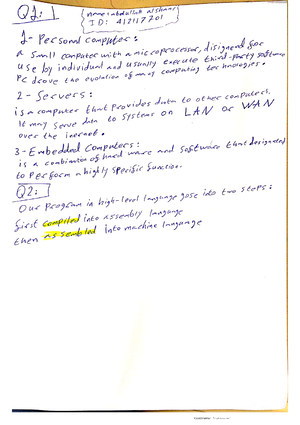 Q1:
name: abdullah alshami
ID: 412117701
1- Personal Computer:
a Small computer with a microprocessor, disigned for
use by individual and usually execute third-party software
PC drove the evolution of many computing technologies.
2- Servers:
is a computer that Provides data to other computers.
It may serve data to systems on LAN or WAN
over the Internet.
3- Embedded Computers:
is a combination of hard ware and software that designated
to Perform a highly specific function.
Q2:
Our Program in high-level language gose into two steps:
first compiled into assembly language
then assembled into machine language